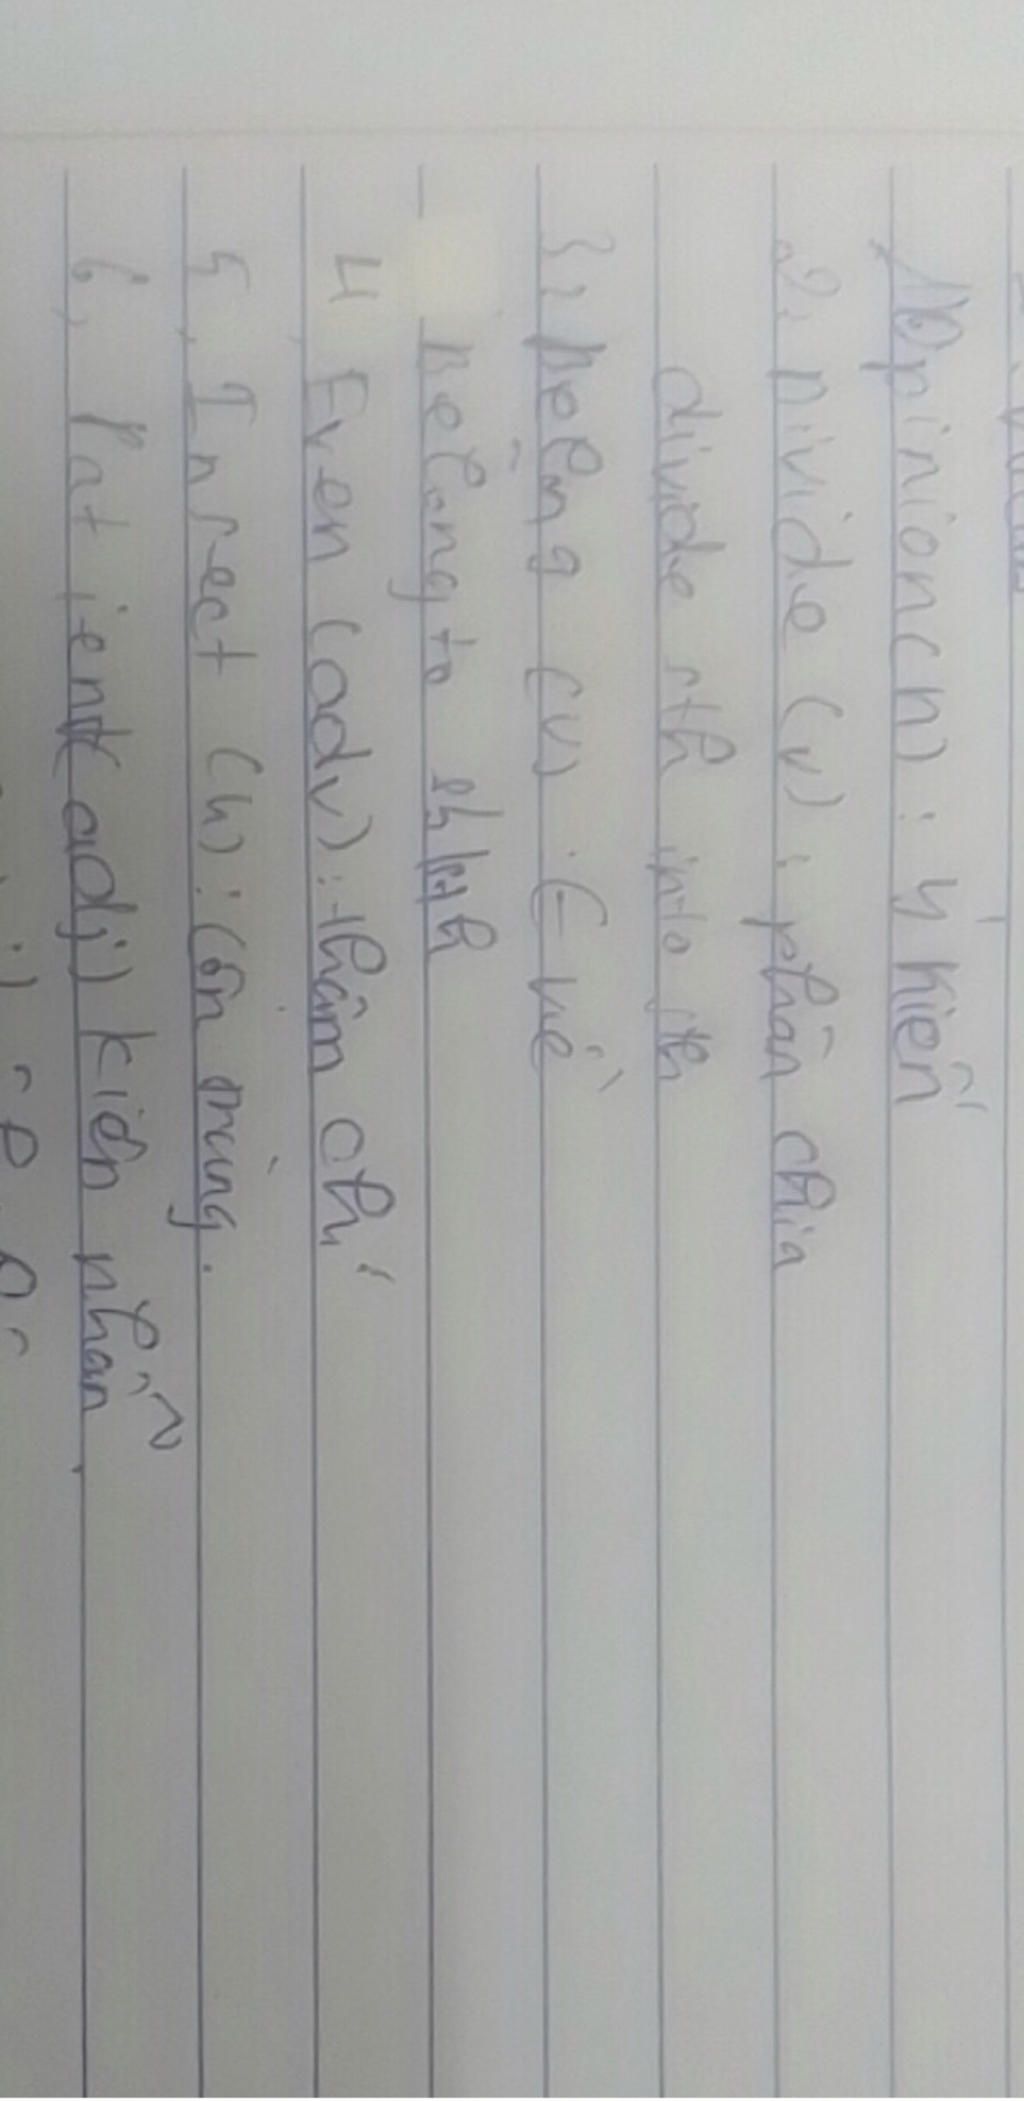 1, Opinion(n) : ý kiến
2, Divide (v) : phân chia
divide sth into sth
3, Belong (v) : ∈ về
Belong to sb/sth
4 Even (adv) : thậm chí
5, Insect (n) : Côn trùng.
6, Patient(adj) kiên nhẫn.